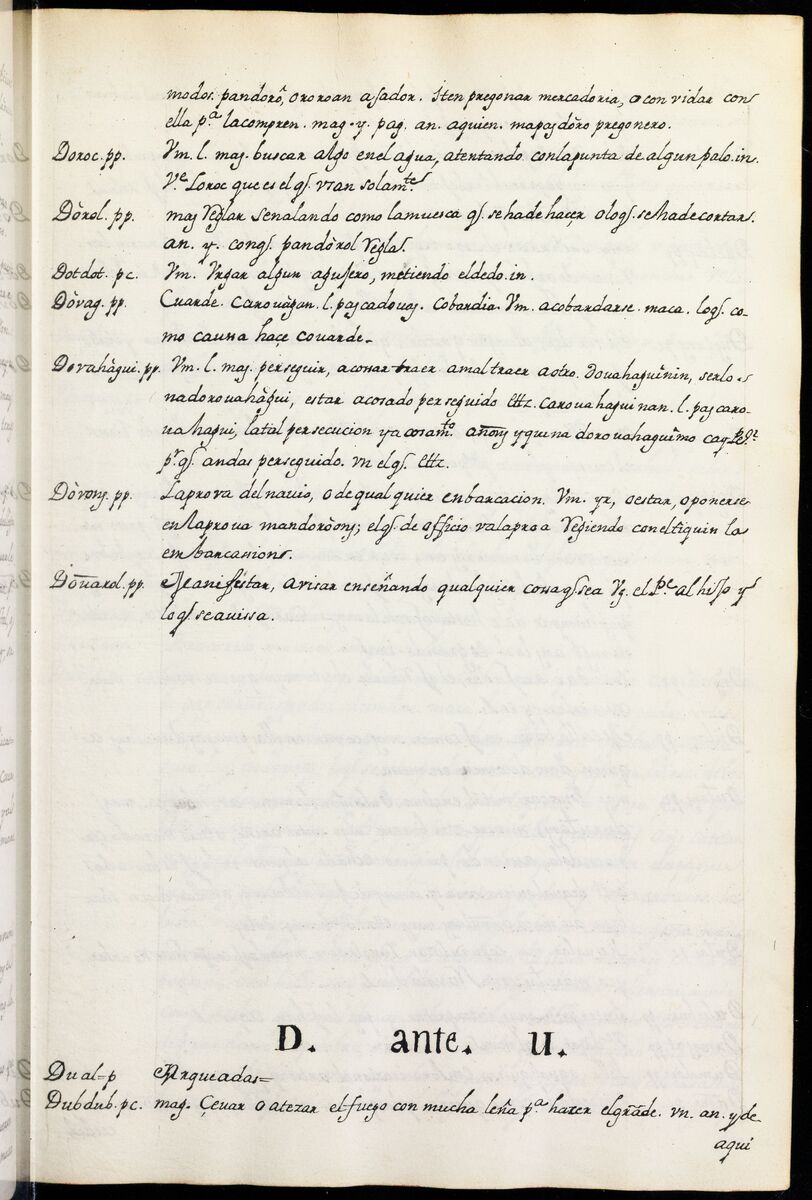 modos. pandorô, o roroan asador. Iten pregonar mercadoria, o con vidar con
ella p.ª lacompren. mag. y. pag. an. aquien. mapagdòro pregonero.
Doroc. pp. Vm. l. mag. buscar algo enel agua, atentando conlapunta de algun palo. in.
V.e Loroc que es el q̃. vsan solam.te
Dòrol. pp. mag Reglar senalando como lamuesca q̃. se hade haçer o loq̃. se hade cortar.
an. y. conq̃. pandòrol Regla.
Dotdot. pc. Vm. Vrgar algun agujero, metiendo eldedo. in.
Dòvag. pp. Cuarde. Carouàgan. l. pagcadouag. Cobardia. Vm. acobardarse. maca. loq̃. co-
mo caussa haçe couarde.
Dovahàgui. pp. Vm. l. mag. perseguir, acossar traer amal traer aotro. douahaguinin, serlo.
nadorouahàgui, estar acosado perseguido &c. carouahaguinan. l. pagcaro-
uahagui, latal persecucion yacosam.to anong yquena dorouahaguîmo
pr q̃. andas perseguido. vn el q̃. &c.
Dòvong. pp. Laprova delnauio, o de qual quier enbarcacion. Vm. yr, o estar, o ponerse
enlaprova mandoroòong; el q̃. de officio valaproa Regiendo coneltiquin la
embarcasion.
Doũarol. pp. Manifestar, avisar enseñando qualquier cossa q̃ sea Vg. el P.e al hijo y
loq̃. seavissa.
D. ante. U.
Dual=p Arqueadas=
Dubdub. pc. mag. Çeuar o atezar el fuego con mucha leña p.ª hazer elgrãde. vn. an. y de
aqui